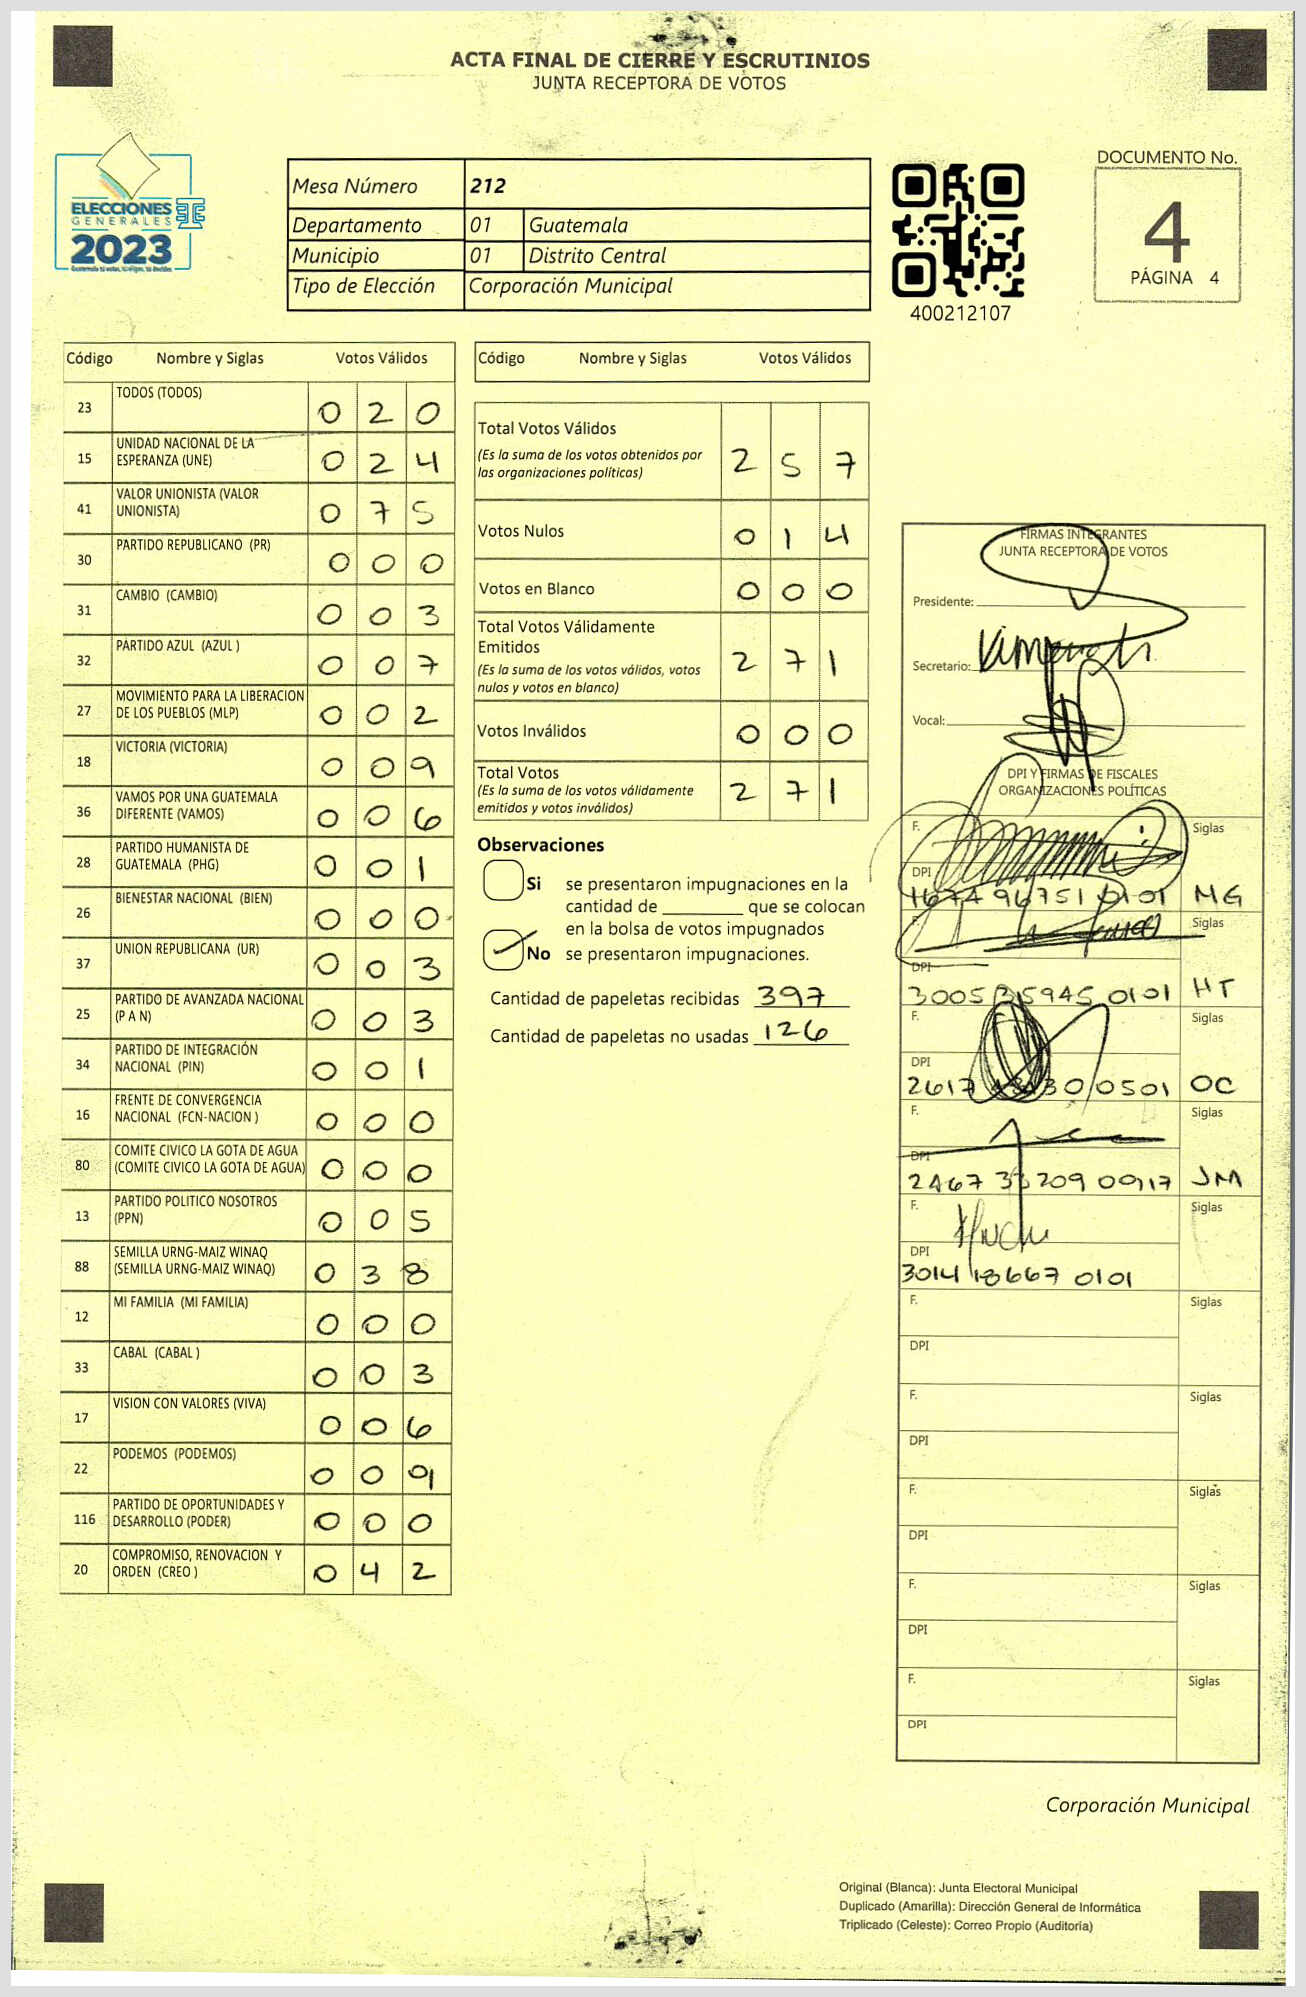 ACTA FINAL DE CIERRE Y ESCRUTINIOS
JUNTA RECEPTORA DE VOTOS
ELECCIONES
GENERALES
2023
Mesa Número 212
Departamento 01 Guatemala
Municipio 01 Distrito Central
Tipo de Elección Corporación Municipal
400212107
DOCUMENTO No.
4
PÁGINA 4
Código Nombre y Siglas Votos Válidos
23 TODOS (TODOS) 0 2 0
15 UNIDAD NACIONAL DE LA ESPERANZA (UNE) 0 2 4
41 VALOR UNIONISTA (VALOR UNIONISTA) 0 7 5
30 PARTIDO REPUBLICANO (PR) 0 0 0
31 CAMBIO (CAMBIO) 0 0 3
32 PARTIDO AZUL (AZUL ) 0 0 7
27 MOVIMIENTO PARA LA LIBERACION DE LOS PUEBLOS (MLP) 0 0 2
18 VICTORIA (VICTORIA) 0 0 9
36 VAMOS POR UNA GUATEMALA DIFERENTE (VAMOS) 0 0 6
28 PARTIDO HUMANISTA DE GUATEMALA (PHG) 0 0 1
26 BIENESTAR NACIONAL (BIEN) 0 0 0
37 UNION REPUBLICANA (UR) 0 0 3
25 PARTIDO DE AVANZADA NACIONAL (P A N) 0 0 3
34 PARTIDO DE INTEGRACIÓN NACIONAL (PIN) 0 0 1
16 FRENTE DE CONVERGENCIA NACIONAL (FCN-NACION ) 0 0 0
80 COMITE CIVICO LA GOTA DE AGUA (COMITE CIVICO LA GOTA DE AGUA) 0 0 0
13 PARTIDO POLITICO NOSOTROS (PPN) 0 0 5
88 SEMILLA URNG-MAIZ WINAQ (SEMILLA URNG-MAIZ WINAQ) 0 3 8
12 MI FAMILIA (MI FAMILIA) 0 0 0
33 CABAL (CABAL ) 0 0 3
17 VISION CON VALORES (VIVA) 0 0 6
22 PODEMOS (PODEMOS) 0 0 9
116 PARTIDO DE OPORTUNIDADES Y DESARROLLO (PODER) 0 0 0
20 COMPROMISO, RENOVACION Y ORDEN (CREO ) 0 4 2
Código Nombre y Siglas Votos Válidos
Total Votos Válidos 2 5 7
(Es la suma de los votos obtenidos por
las organizaciones políticas)
Votos Nulos 0 1 4
Votos en Blanco 0 0 0
Total Votos Válidamente
Emitidos 2 7 1
(Es la suma de los votos válidos, votos
nulos y votos en blanco)
Votos Inválidos 0 0 0
Total Votos 2 7 1
(Es la suma de los votos válidamente
emitidos y votos inválidos)
Observaciones
Si se presentaron impugnaciones en la
cantidad de ________ que se colocan
en la bolsa de votos impugnados
No se presentaron impugnaciones.
Cantidad de papeletas recibidas 397
Cantidad de papeletas no usadas 126
FIRMAS INTEGRANTES
JUNTA RECEPTORA DE VOTOS
Presidente:
Secretario:
Vocal:
DPI Y FIRMAS DE FISCALES
ORGANIZACIONES POLÍTICAS
F. Siglas
DPI
MG
F. Siglas
DPI
HT
F. Siglas
DPI
OC
F. Siglas
DPI
JM
F. Siglas
DPI
3014 18667 0101
F. Siglas
DPI
F. Siglas
DPI
F. Siglas
DPI
F. Siglas
DPI
F. Siglas
DPI
Corporación Municipal
Original (Blanca): Junta Electoral Municipal
Duplicado (Amarilla): Dirección General de Informática
Triplicado (Celeste): Correo Propio (Auditoría)